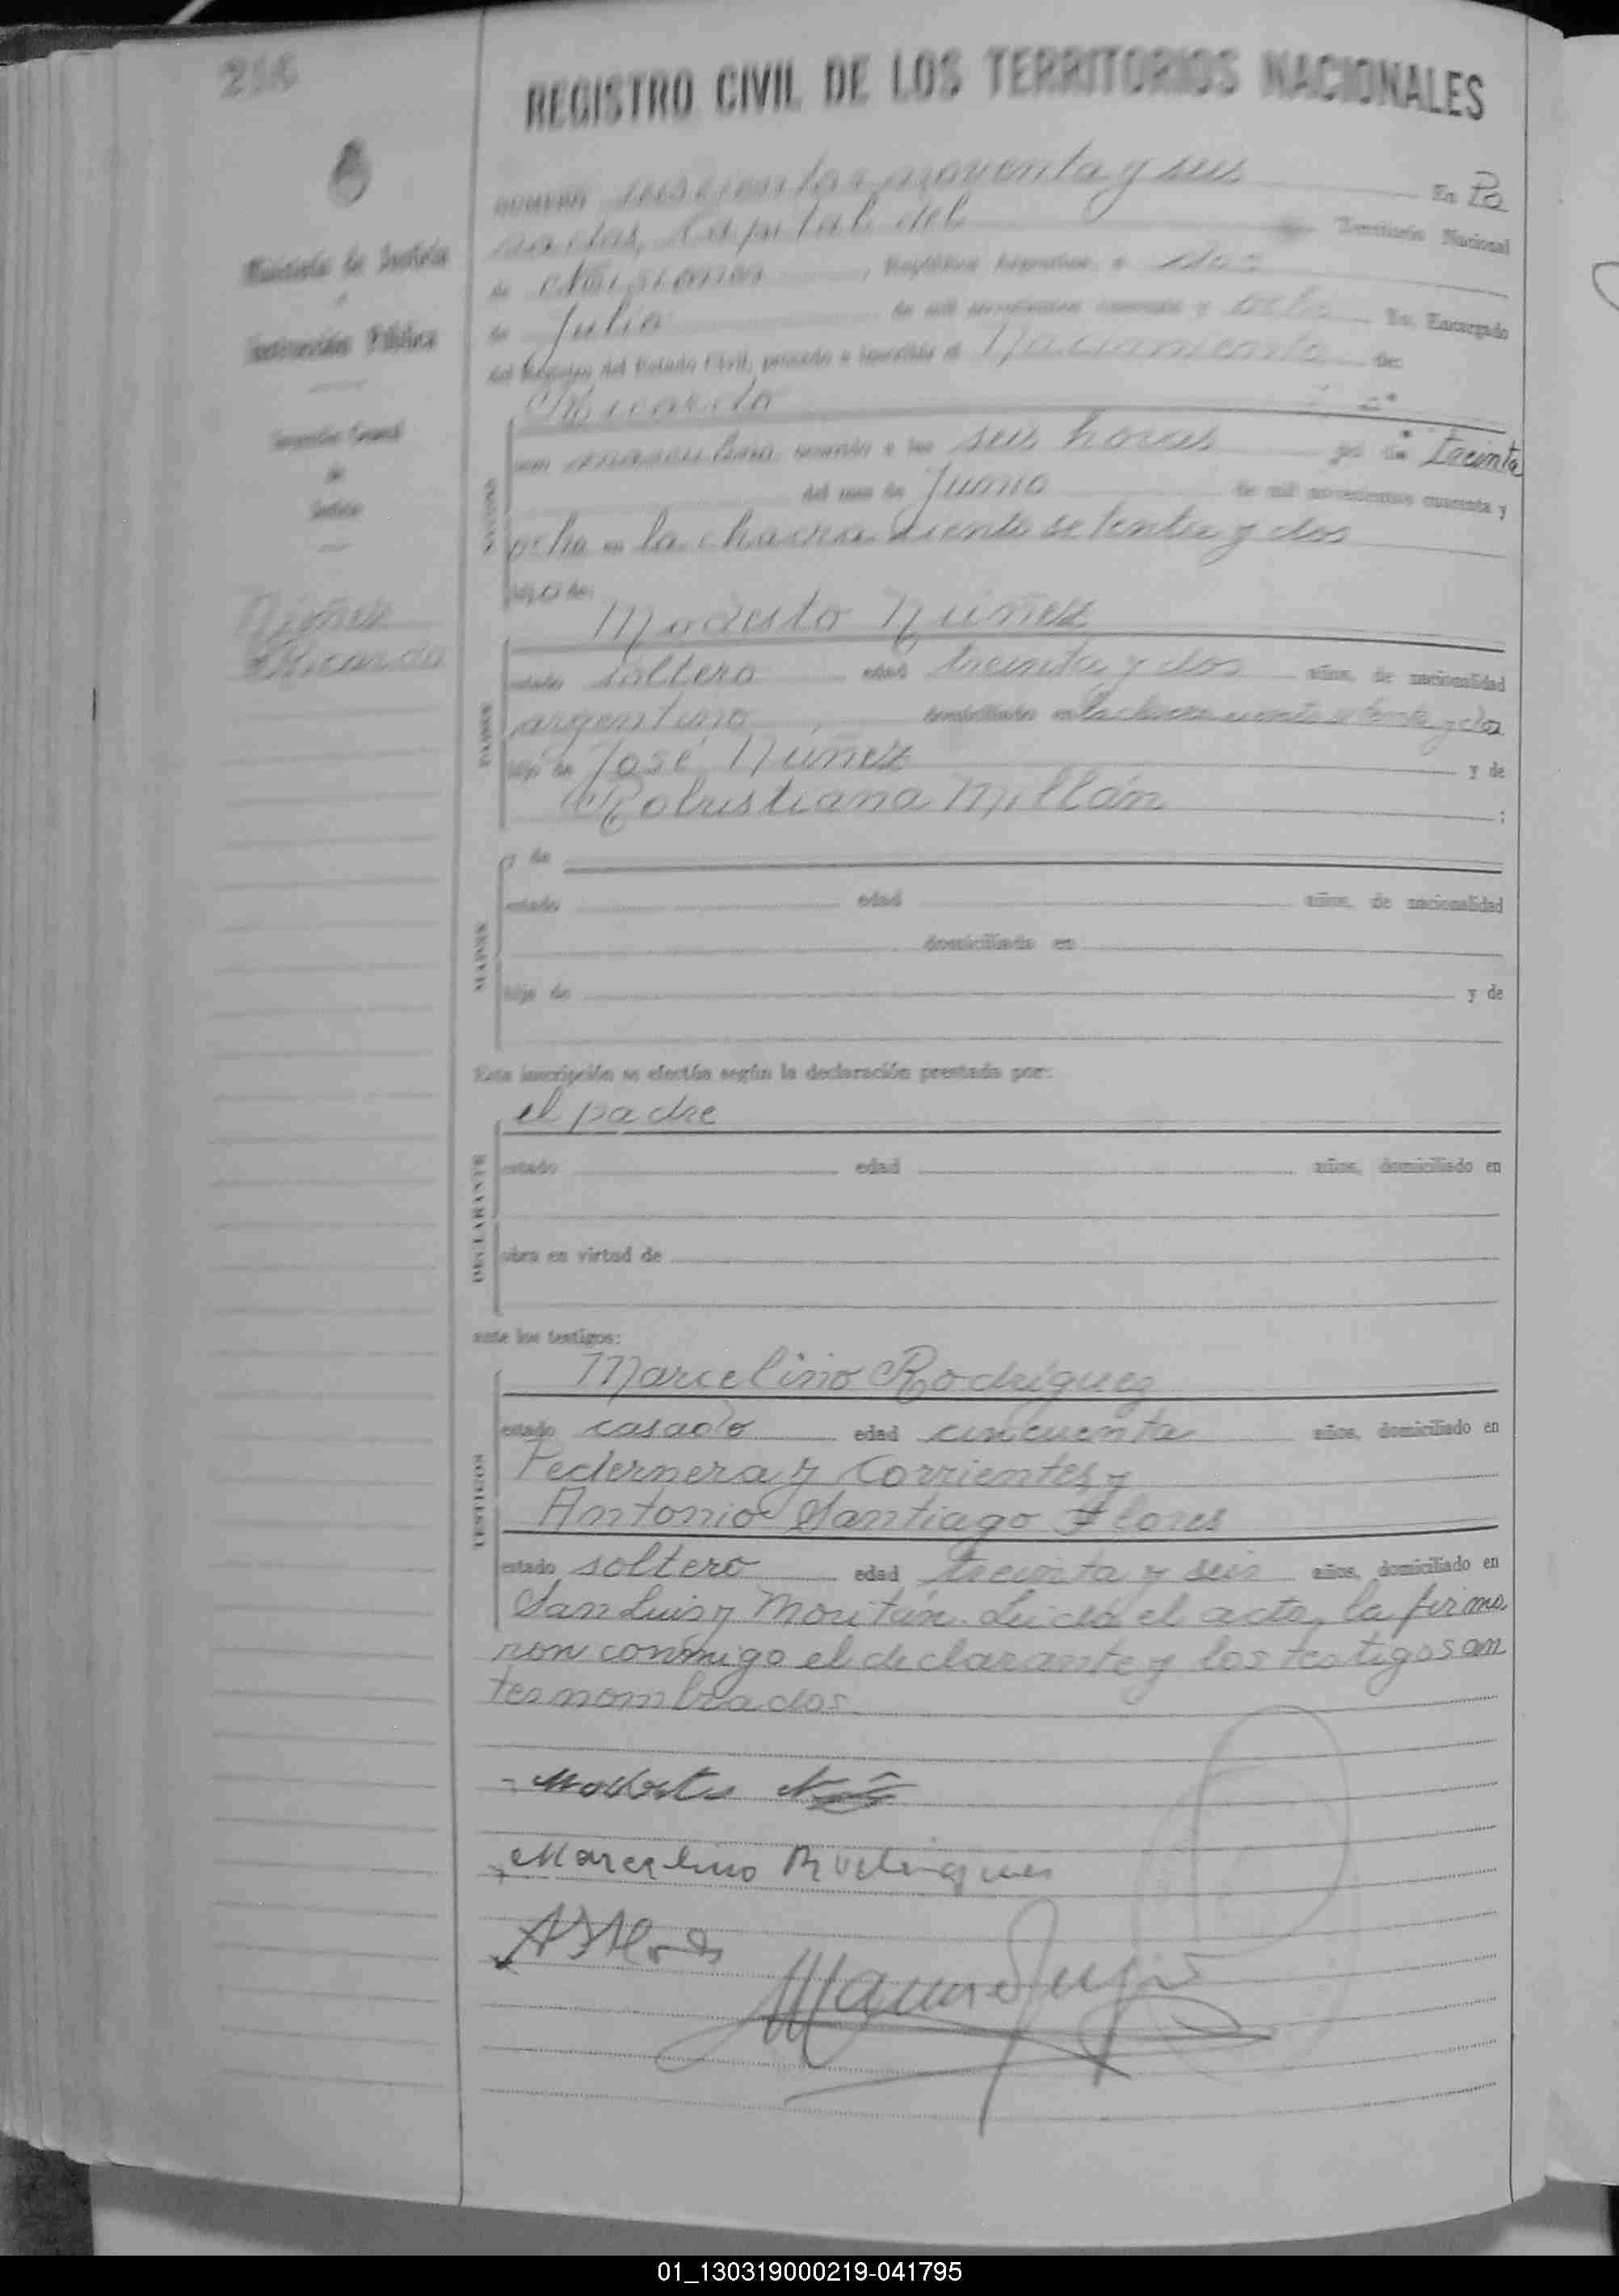 216
REGISTRO CIVIL DE LOS TERRITORIOS NACIONALES
Ministerio de Justicia
e
Instrucción Pública
Inspección General
de
Justicia
Núñez
Ricardo
NUMERO seiscientos noventa y seis En Po
sadas, Capital del Territorio Nacional
de Misiones, República Argentina, a dos
de Julio de mil novecientos cuarenta y ocho Yo, Encargado
del Registro del Estado Civil, procedo a inscribir el Nacimiento de:
Ricardo
sexo masculino ocurrido a las seis horas del día treinta
del mes de Junio de mil novecientos cuarenta y
ocho en la chacra ciento setenta y dos
hijo de:
Modesto Núñez
estado soltero edad treinta y dos años, de nacionalidad
argentino domiciliado en la chacra ciento setenta y dos
hijo de José Núñez y de
Robustiana Millán ;
PADRE
y de
estado edad años, de nacionalidad
domiciliada en
hija de y de
MADRE
Esta inscripción se efectúa según la declaración prestada por:
el padre
estado edad años, domiciliado en
obra en virtud de
DECLARANTE
ante los testigos:
Marcelino Rodríguez
estado casado edad cincuenta años, domiciliado en
Pedernera y Corrientes y
Antonio Santiago Flores
estado soltero edad treinta y seis años, domiciliado en
TESTIGOS
San Luis y Moritán. Leída el acta, la firma
ron conmigo el declarante y los testigos an
tes nombrados.
Modesto
Marcelino Rodriguez
A S Flores
01_130319000219-041795